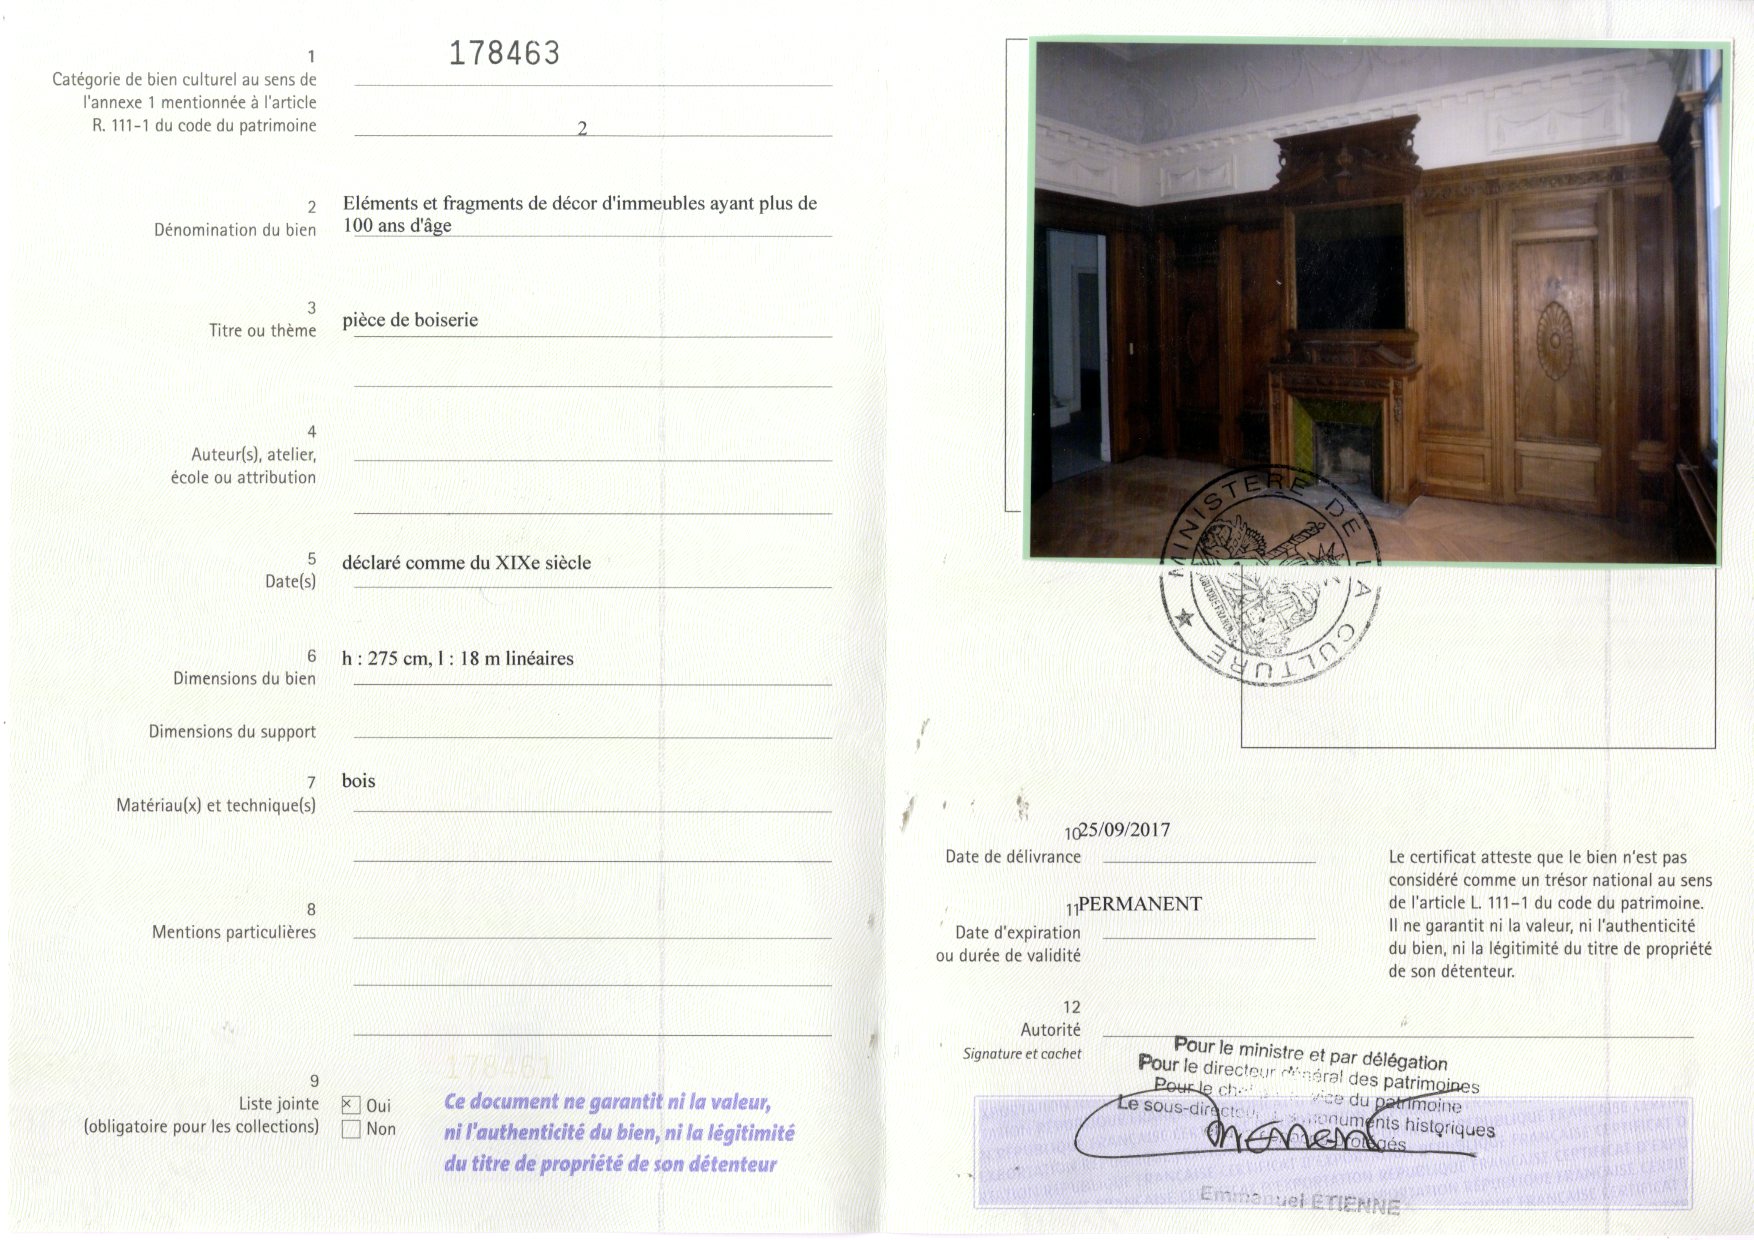 178463
1
Catégorie de bien culturel au sens de
l'annexe 1 mentionnée à l'article
R. 111-1 du code du patrimoine
2
2
Dénomination du bien
Eléments et fragments de décor d'immeubles ayant plus de
100 ans d'âge
3
Titre ou thème
pièce de boiserie
4
Auteur(s), atelier,
école ou attribution
5
Date(s)
déclaré comme du XIXe siècle
6
Dimensions du bien
h : 275 cm, l : 18 m linéaires
Dimensions du support
7
Matériau(x) et technique(s)
bois
8
Mentions particulières
178461
9
Liste jointe
(obligatoire pour les collections)
Oui
Non
Ce document ne garantit ni la valeur,
ni l'authenticité du bien, ni la légitimité
du titre de propriété de son détenteur
MINISTERE DE LA CULTURE
10
25/09/2017
Date de délivrance
11
PERMANENT
Date d'expiration
ou durée de validité
Le certificat atteste que le bien n'est pas
considéré comme un trésor national au sens
de l'article L. 111-1 du code du patrimoine.
Il ne garantit ni la valeur, ni l'authenticité
du bien, ni la légitimité du titre de propriété
de son détenteur.
12
Autorité
Signature et cachet
Pour le ministre et par délégation
Pour le directeur général des patrimoines
Pour le du patrimoine
Le sous-directeur monuments historiques
Emmanuel ETIENNE